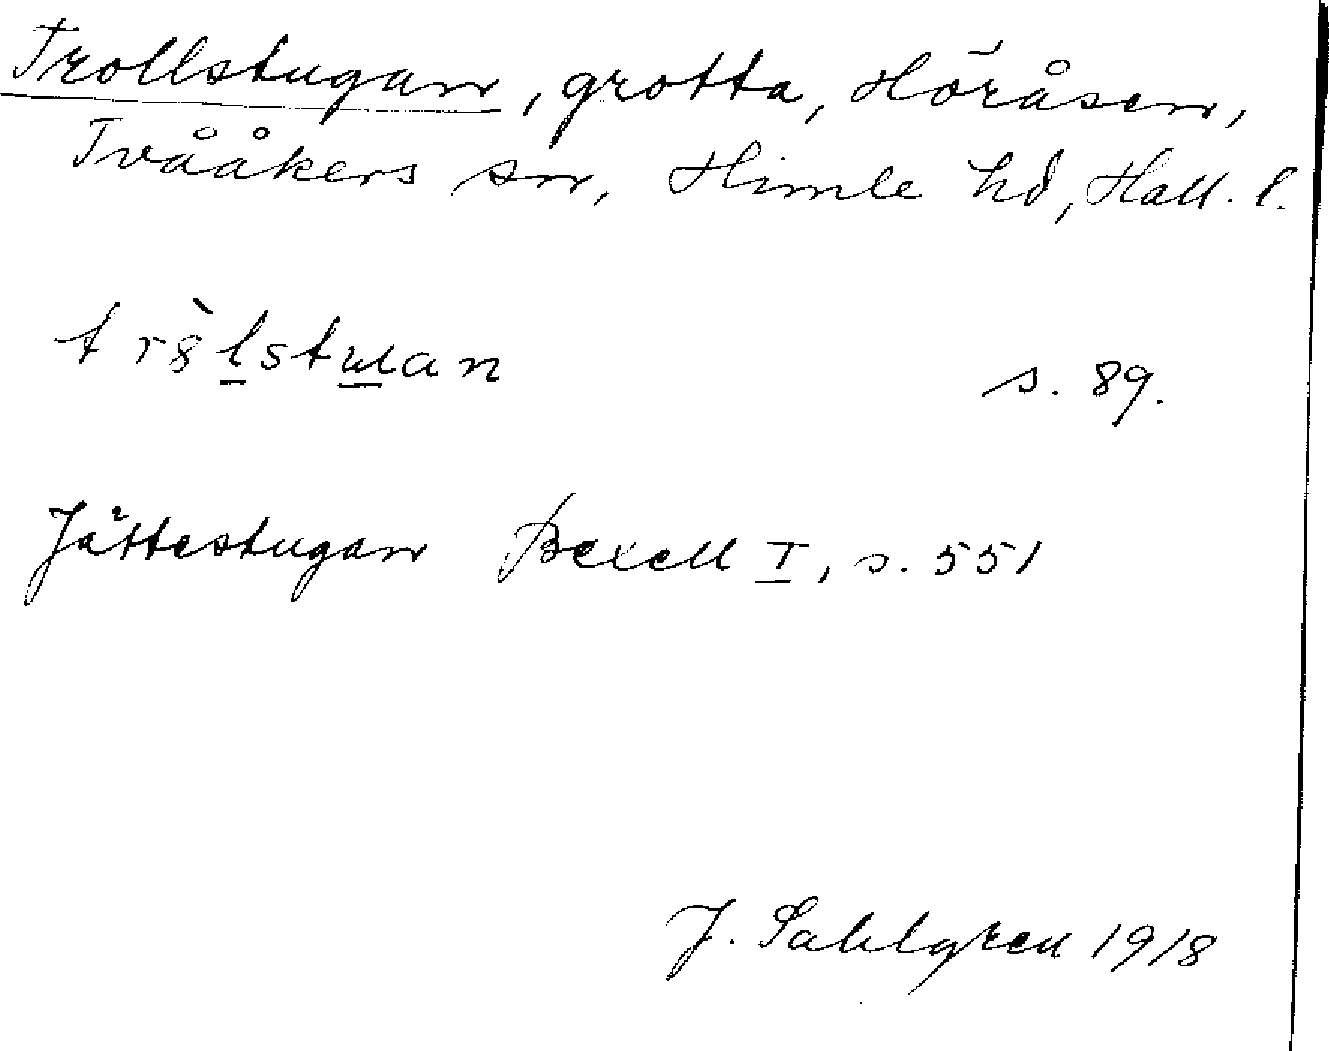 Trollstugan, grotta, Höråsen,
Tvååkers sn, Himle hd, Hall. l.
s. 89.
Jättestugan Bexell I, s. 551
J. Sahlgren 1918